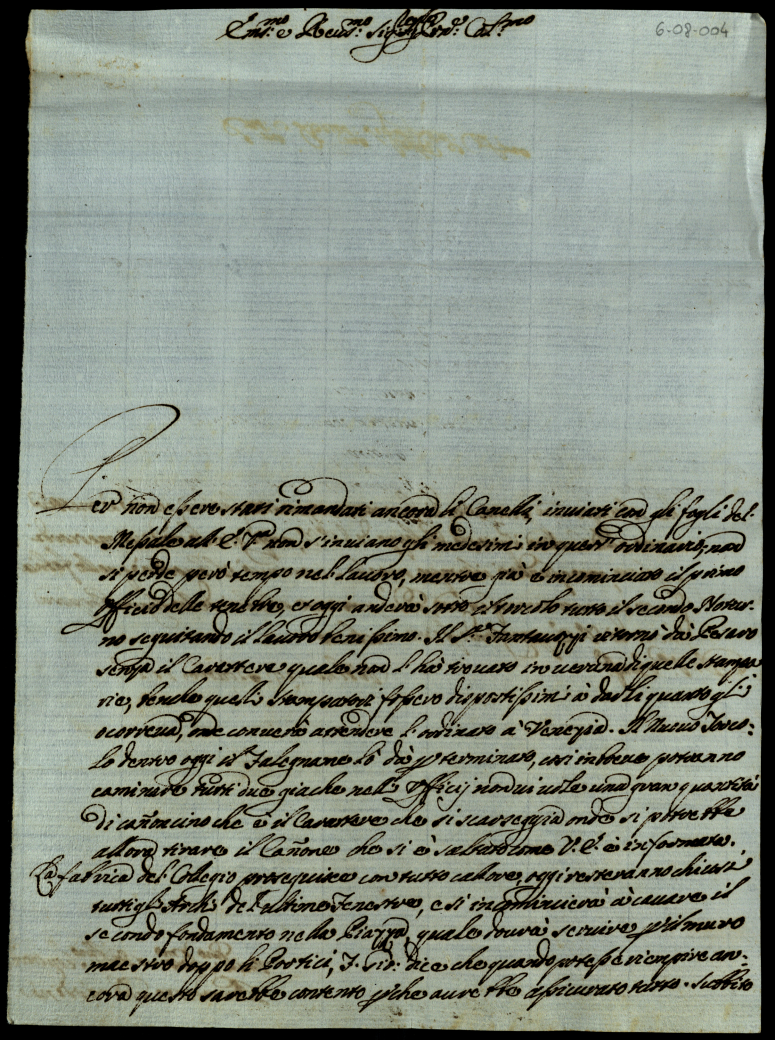 6-08-004
Em.mo e Reu.mo Sig.r Sig.r P.rone Col.mo
Per non essere stati rimandati ancora li Canella, inuiati con gli fogli del
Messale all' E. V.ra non s'inuiano gli medesimi in quest' ordinario, non
si perde però tempo nel lauoro, mentre già è incominciato il primo
officio delle tenebre, et oggi anderà sotto il torcolo tutto il secondo Notur-
no seguitando il lauoro benissimo. Il S.r Fantauzzi ritornò da Pesaro
senza il Carattere quale non l' hà trouato in ueruna di quelle stampa-
rie, benche quelli stampatori fossero dispostissimi à darli quanto gli
ocorreua, onde conuerrà attendere l' ordinato à Venezia. Il Nuouo Torco-
lo dentro oggi il Falegname lo dà p terminato, così in breue potranno
caminare tutti due giache nell' officij non ui uole una gran quantità
di cañoncino che è il Carattere che si scarseggia onde si potrebbe
allora tirare il Cañone che si è saltato come V. E. è informata.
La fabrica del Collegio proseguisce con tutto calore, oggi resteranno chiusi
tutti gl' Archi dell' ultime Fenestre, e si incomincierà à cauare il
secondo fondamento nella Piazza, quale dourà seruire p il muro
maestro doppo li Portici, dice che quando potesse riempire an-
cora questo sarebbe contento p che aurebbe assicurato tutto. Subbito